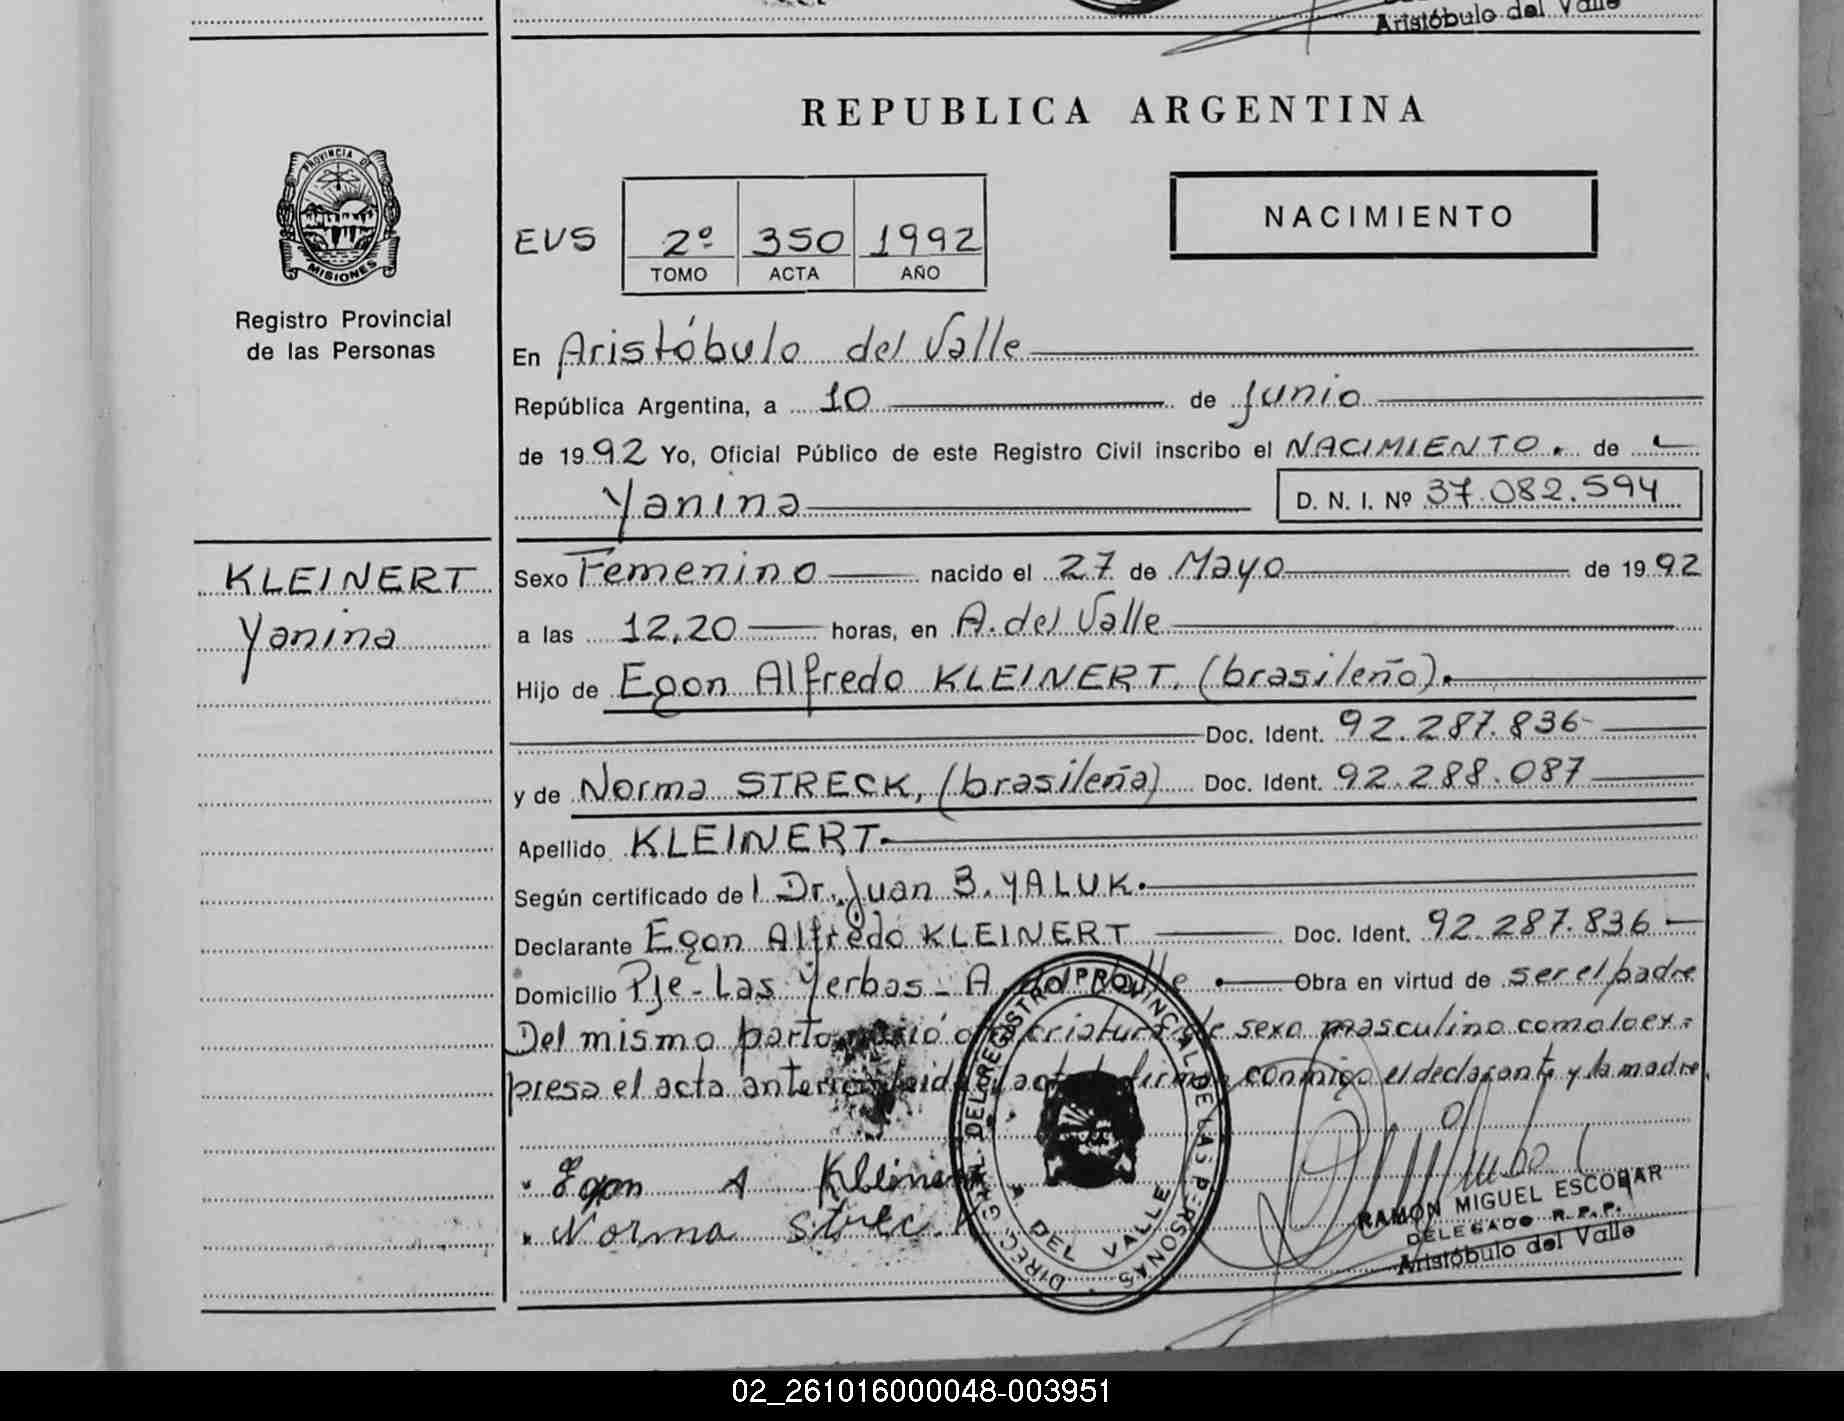 Aristóbulo del Valle
REPUBLICA ARGENTINA
PROVINCIA DE
MISIONES
Registro Provincial
de las Personas
NACIMIENTO
EVS 2º 350 1992
TOMO ACTA AÑO
En Aristóbulo del Valle
República Argentina, a 10 de Junio
de 1992 Yo, Oficial Público de este Registro Civil inscribo el NACIMIENTO. de
Yanina D. N. I. Nº 37.082.594
KLEINERT
Yanina
Sexo Femenino nacido el 27 de Mayo de 1992
a las 12,20 horas, en A. del Valle
Hijo de Egon Alfredo KLEINERT. (brasileño).
Doc. Ident. 92.287.836-
y de Norma STRECK, (brasileña) Doc. Ident. 92.288.087
Apellido KLEINERT.
Según certificado del Dr. Juan B. YALUK.
Declarante Egon Alfredo KLEINERT Doc. Ident. 92.287.836
Domicilio Pje-Las Yerbas-A. del Valle. Obra en virtud de ser el padre
Del mismo parto nació otra criatura de sexo masculino como lo ex=
presa el acta anterior, leída el acta la firman conmigo el declarante y la madre.
Egon A Kleinert
Norma Streck
DIREC. GRAL. DEL REGISTRO PROVINCIAL DE LAS PERSONAS
A. DEL VALLE
RAMÓN MIGUEL ESCOBAR
DELEGADO R.P.P.
Aristóbulo del Valle
02_261016000048-003951